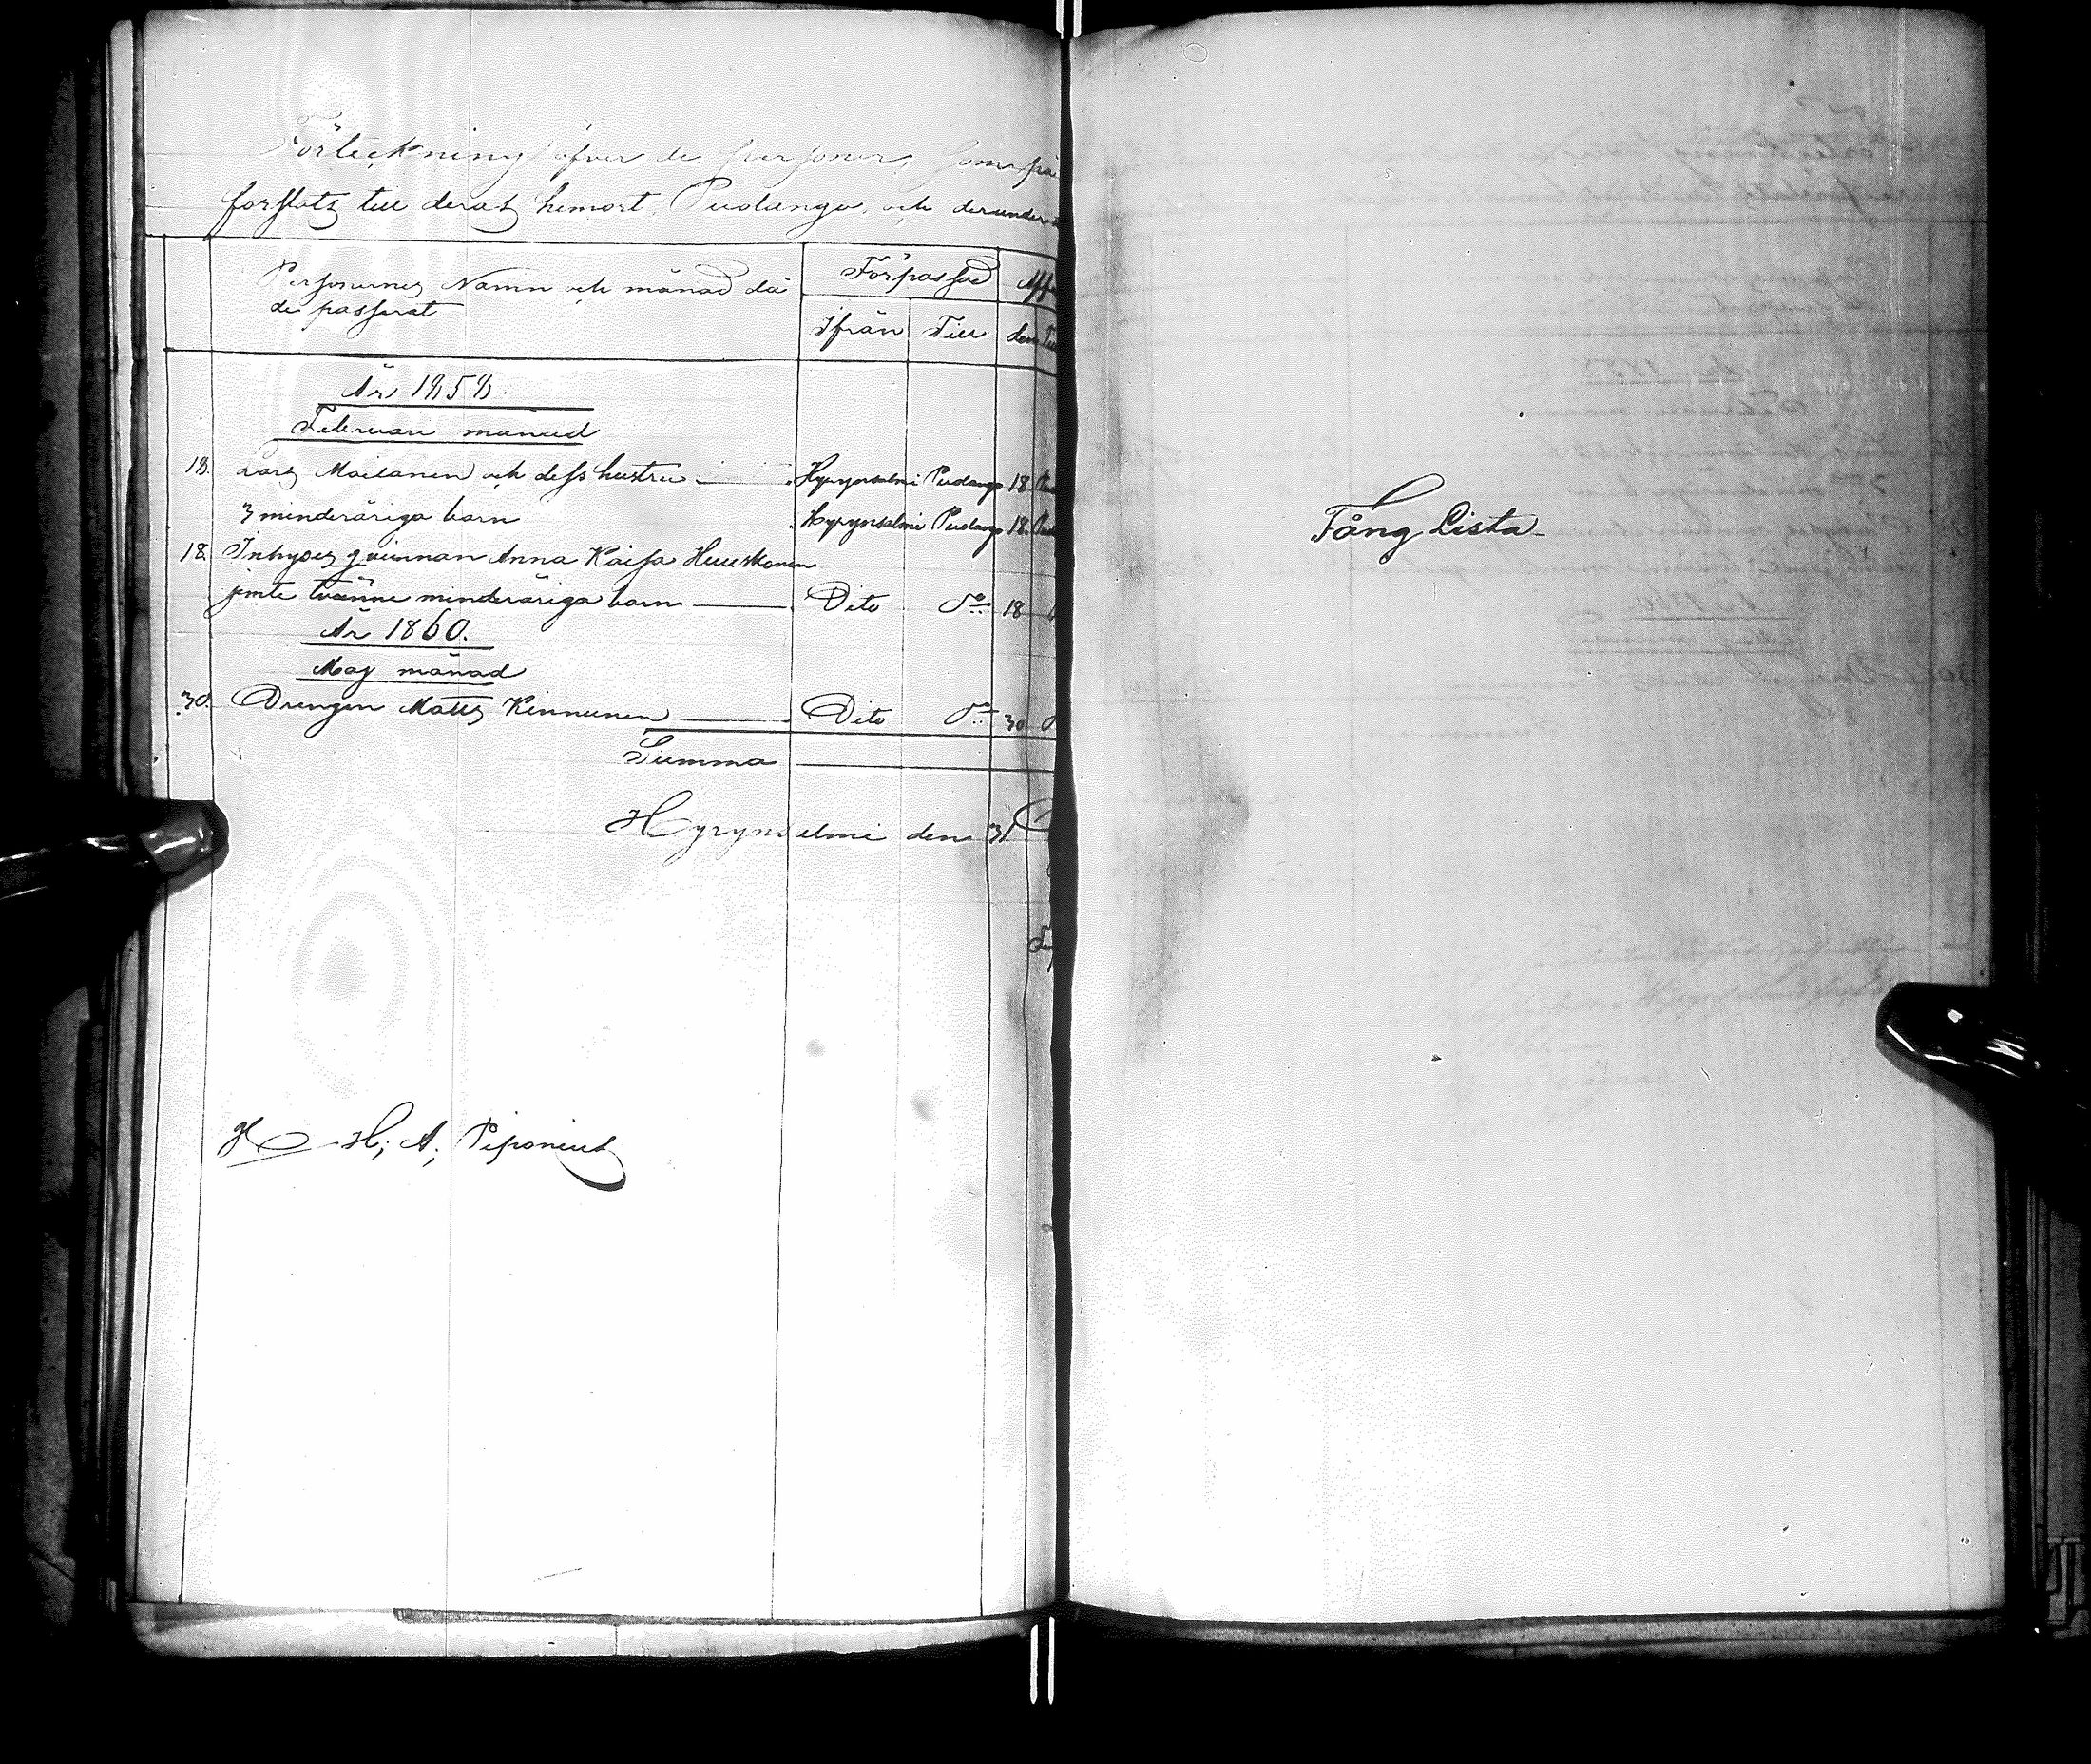 Förteckning öfver de personer, som på
forslats till deras hemort, Pudango, och derunder
Personernes Namn och månad då
de passerat
Förpassad
Ifrån Till den
År 1858.
Februari månad
18. Lars Moilanen och dess hustru Hyrynsalmi Pudango 18.
3 minderåriga barn Hyrynsalmi Pudango 18.
18. Inhyses qvinnan Anna Kaisa Heiskanen
jemte tvänne minderåriga barn Dito do 18
År 1860.
Maj månad
30. Drengen Matts Kinnunen Dito do 30
Summa
Hyrynsalmi den 31.
H; A; Piponius
Fång Lista